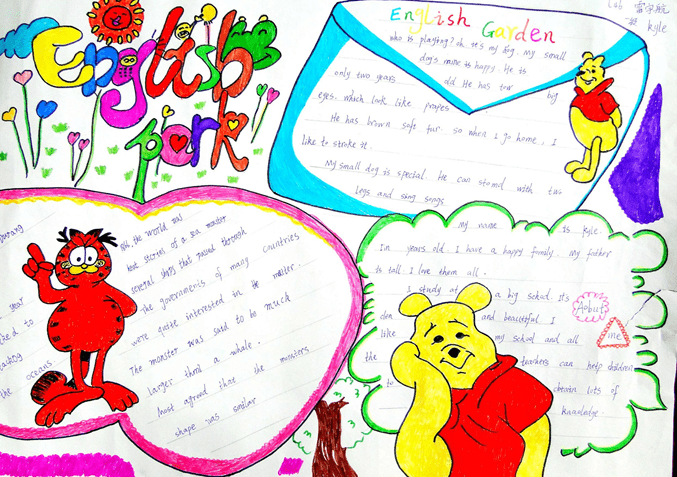 English
park
English Garden
who is playing? oh it's my dog. My small
dog's name is happy. He is
only two years old He has tow big
eyes. which look like
He has brown soft fur. so when I go home, I
like to stroke it.
My small dog is special. He can stand with two
legs and sing songs
kyle
the world was
stories of a sea monster
several ships that passed through
The governments of many countries
were quite interested in the matter.
The monster was said to be much
larger than a whale.
Most agreed that the monsters
shape was similar
year
to
the oceans.
my name is kyle.
In years old. I have a happy family. My father
is tall. I love them all.
I study at a big school. Its
den and beautiful. I
like my school and all
the teachers can help children
to obtain lots of
knowledge.
Aobut
me